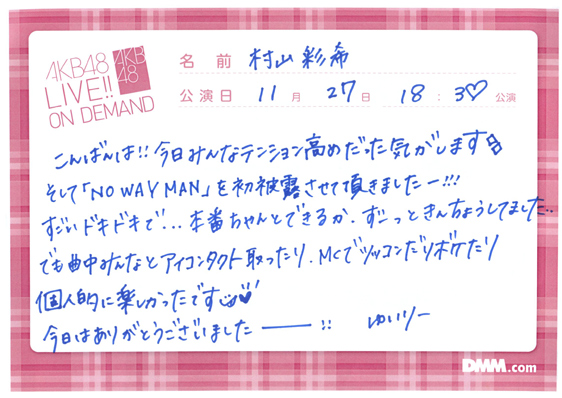 AKB48
LIVE!!
ON DEMAND
AKB
48
名前 村山彩希
公演日 11月27日 18:30公演
こんばんは!!今日みんなテンション高めだった気がします
そして「NO WAY MAN」を初披露させて頂きましたー!!!
すごいドキドキで...本番ちゃんとできるか、ずーっときんちょうしてました..
でも曲中みんなとアイコンタクト取ったり、MCでツッコんだりボケたり
個人的に楽しかったです
今日はありがとうございました――!! ゆいりー
DMM.com